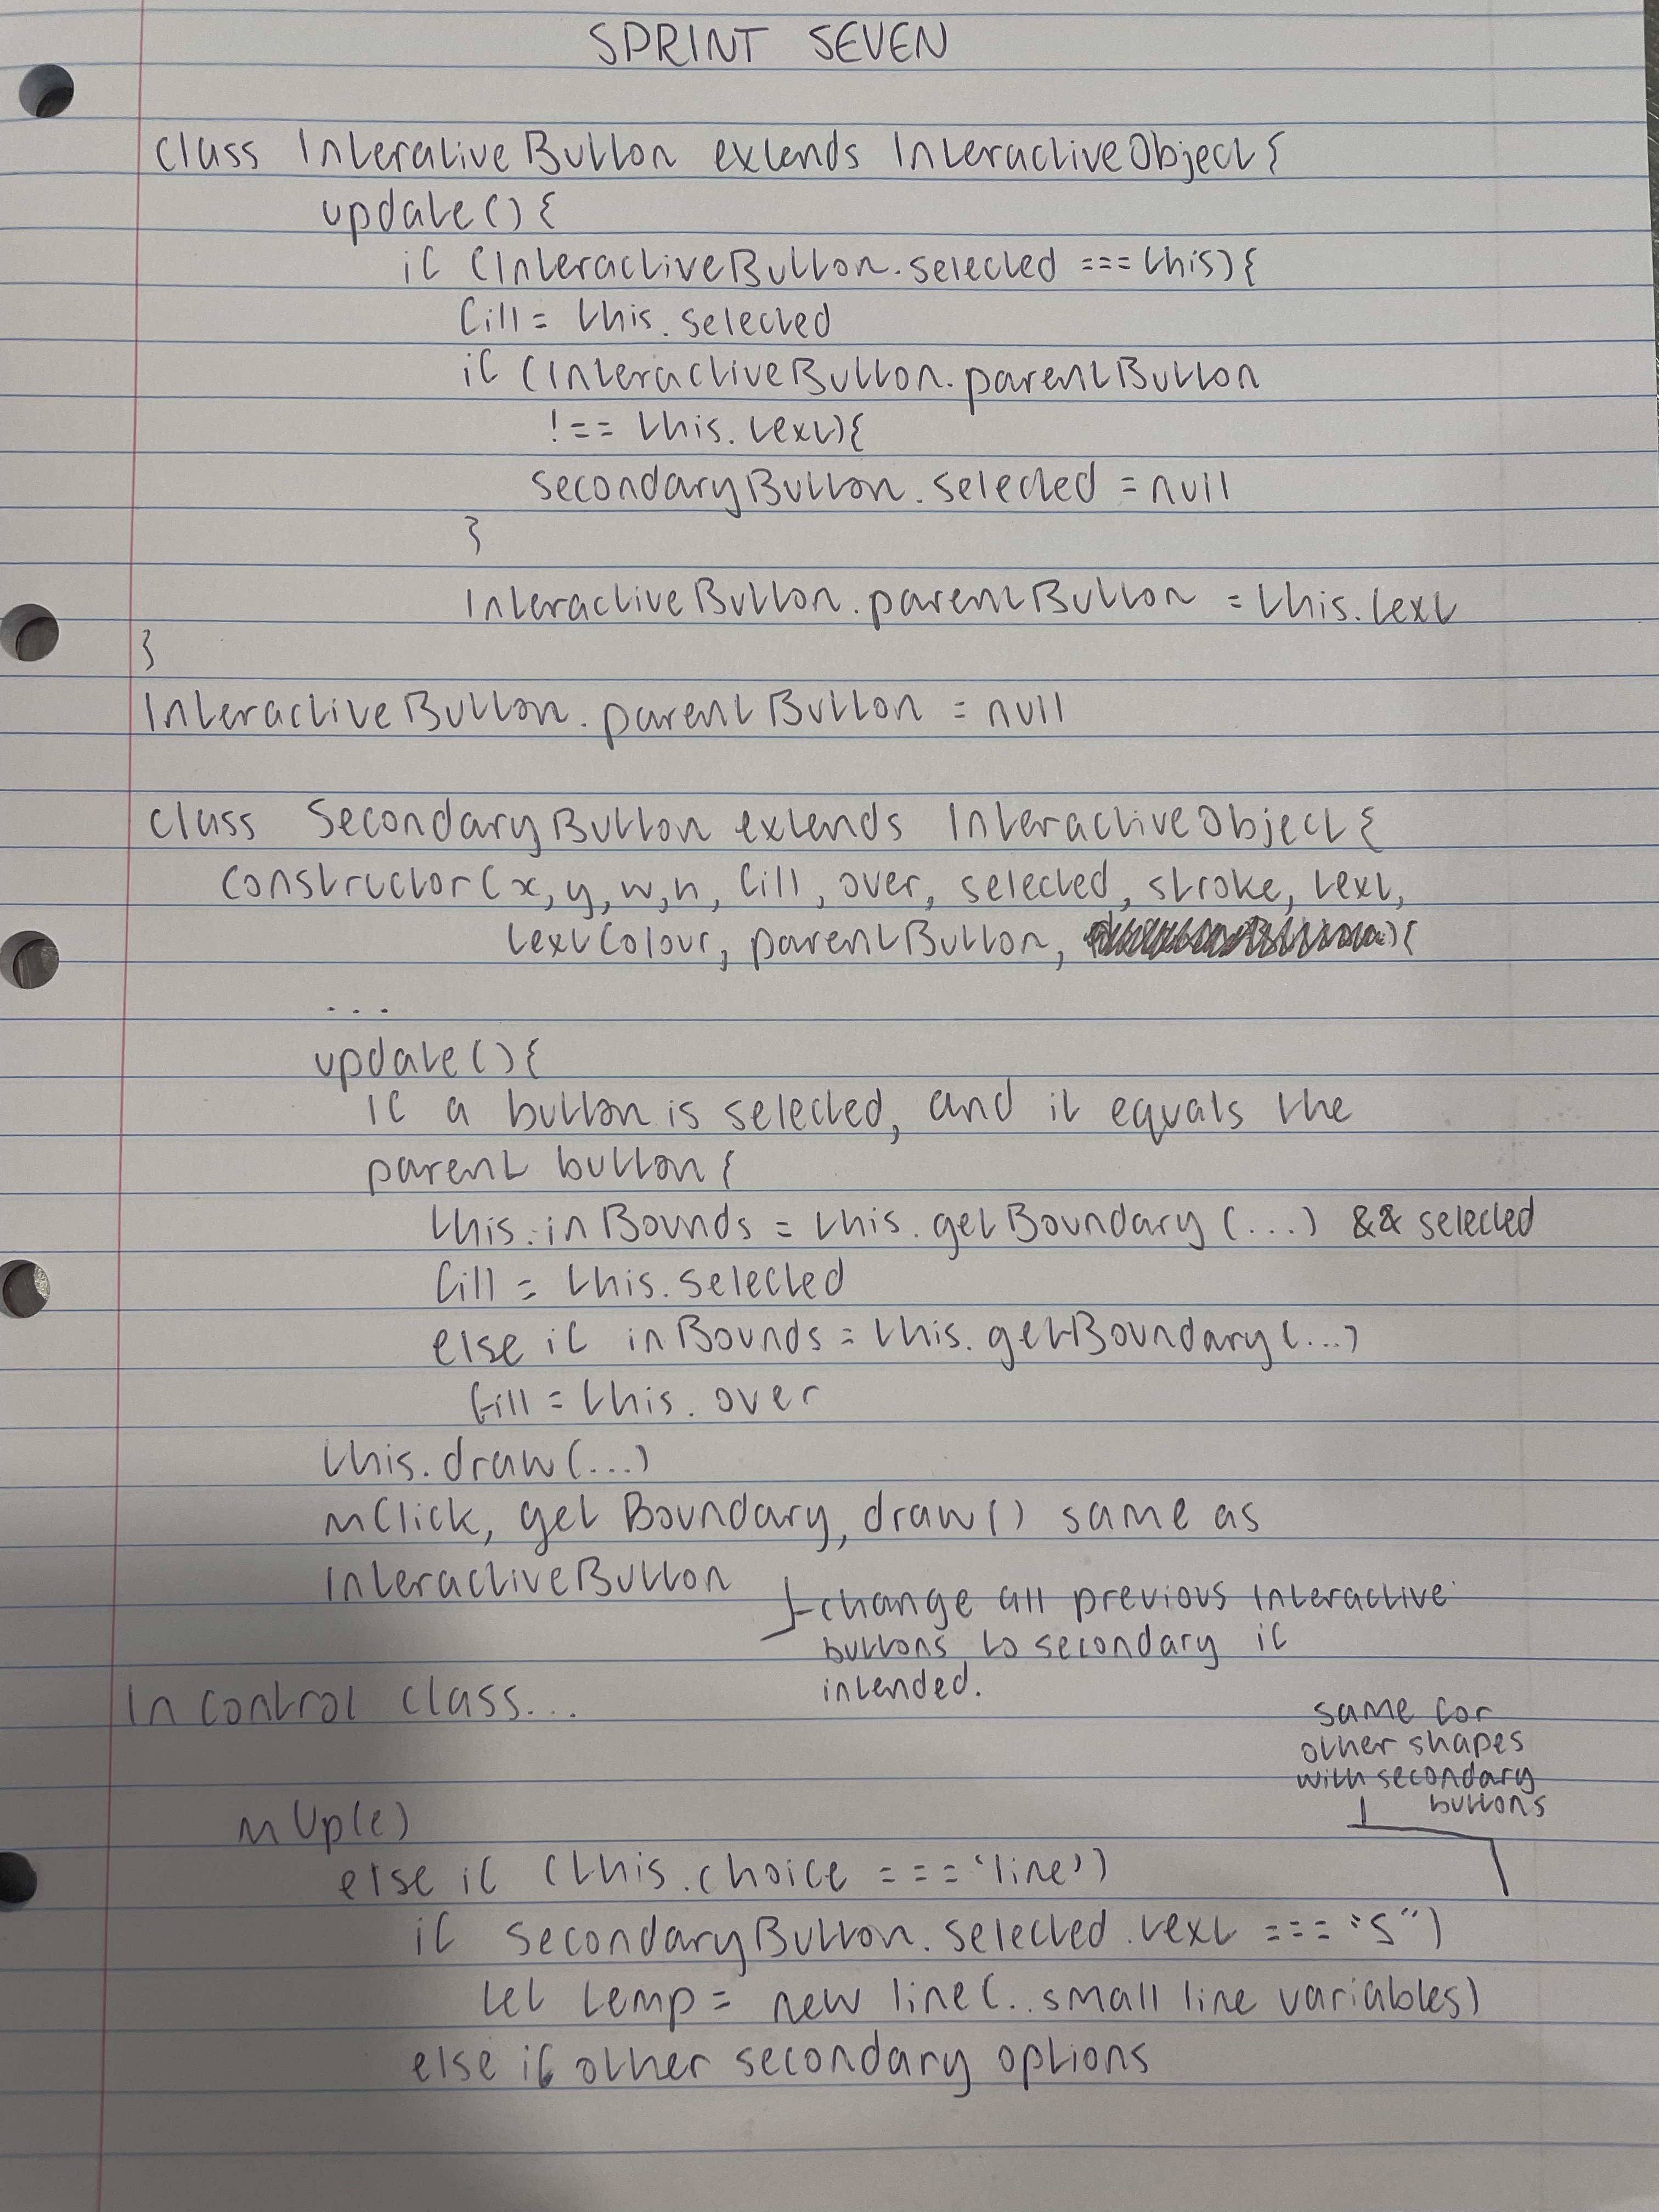 SPRINT SEVEN
class InterativeButton extends InteractiveObject{
update(){
if (InteractiveButton.selected === this){
fill = this.selected
if (InteractiveButton.parentButton
!== this.text){
secondaryButton.selected = null
}
InteractiveButton.parentButton = this.text
}
InteractiveButton.parentButton = null
class SecondaryButton extends InteractiveObject{
constructor(x, y, w, h, fill, over, selected, stroke, text,
textColour, parentButton, ){
...
update(){
if a button is selected, and it equals the
parent button{
this.inBounds = this.getBoundary(...) && selected
fill = this.selected
else if inBounds = this.getBoundary(...)
fill = this.over
this.draw(...)
mClick, getBoundary, draw() same as
InteractiveButton
change all previous interactive
buttons to secondary if
intended.
In control class...
same for
other shapes
with secondary
buttons
mUp(e)
else if (this.choice === 'line')
if secondaryButton.selected.text === "S")
let temp = new line(..small line variables)
else if other secondary options